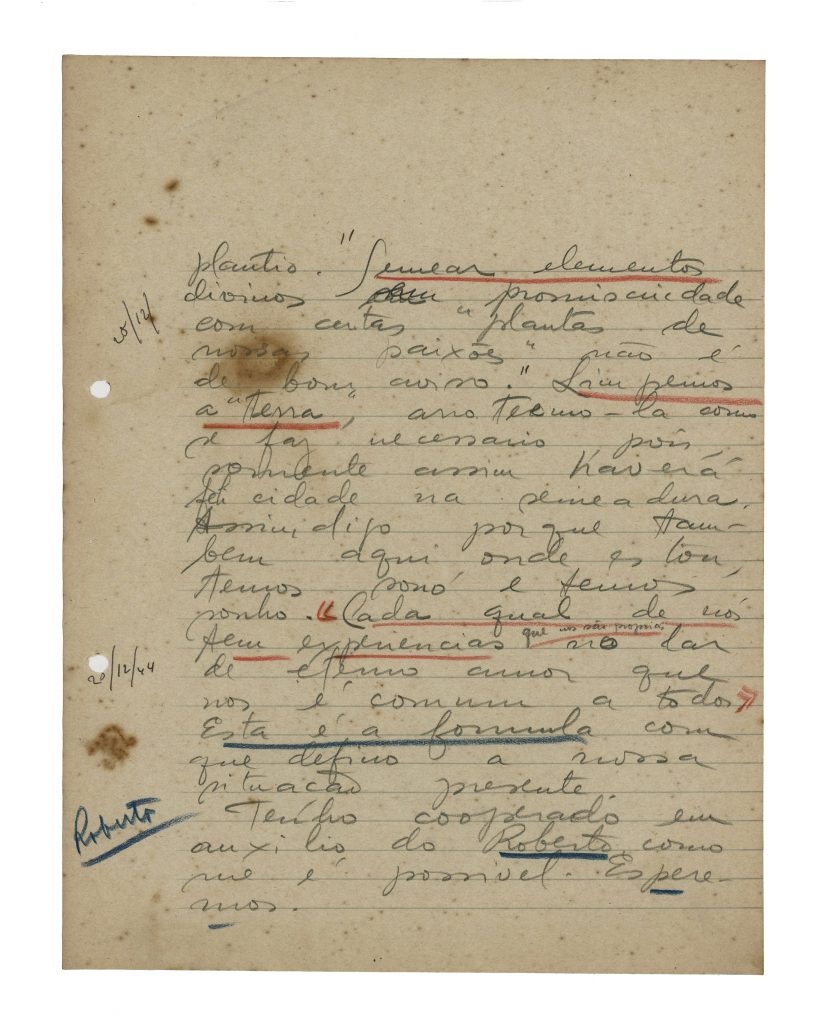 plantio. "Semear elementos
divinos em promiscuidade
com certas "plantas de
nossas paixões" não é
de bom aviso." Limpemos
a "terra", arroteemo-la como
se faz necessario pois,
somente assim haverá
felicidade na semeadura.
Assim, digo porque tam-
bem aqui onde estou,
temos sono e temos
sonho. «Cada qual de nós
tem experiencias que nos são proprias no lar
de eterno amor que
nos é comum a todos»
Esta é a formula com
que defino a nossa
situação presente.
Tenho cooperado em
auxilio do Roberto, como
me é possivel. Espere-
mos.
20/12/
20/12/44
Roberto